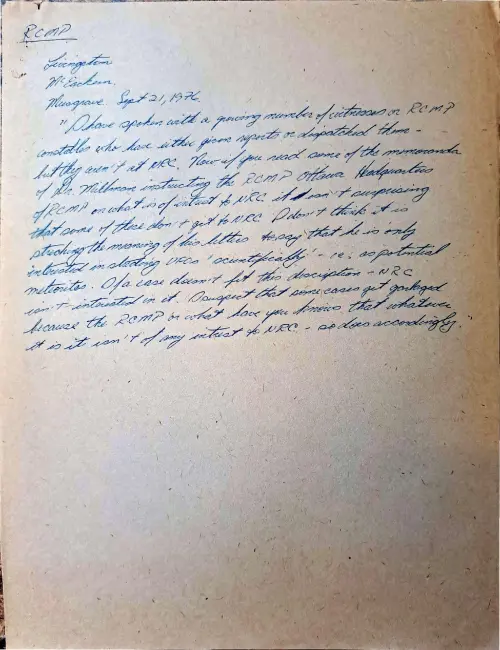 RCMP
Livingston
McEachern
Musgrave. Sept 21, 1976.
"I have spoken with a growing number of witnesses or RCMP
constables who have either given reports or dispatched them -
but they aren't at NRC. Now if you read some of the memoranda
of Dr. Millman instructing the RCMP Ottawa Headquarters
of RCMP on what is of intrest to NRC it isn't surprising
that some of these don't get to NRC. I don't think it is
streching the meaning of his letters to say that he is only
interested in studing UFOs 'scientifically' - ie. as potential
meteorites. If a case doesn't fit this description - NRC
isn't interested in it. I suspect that some cases get garbaged
because the RCMP or what have you knows that whatever
it is it isn't of any intrest to NRC - so does accordingly."